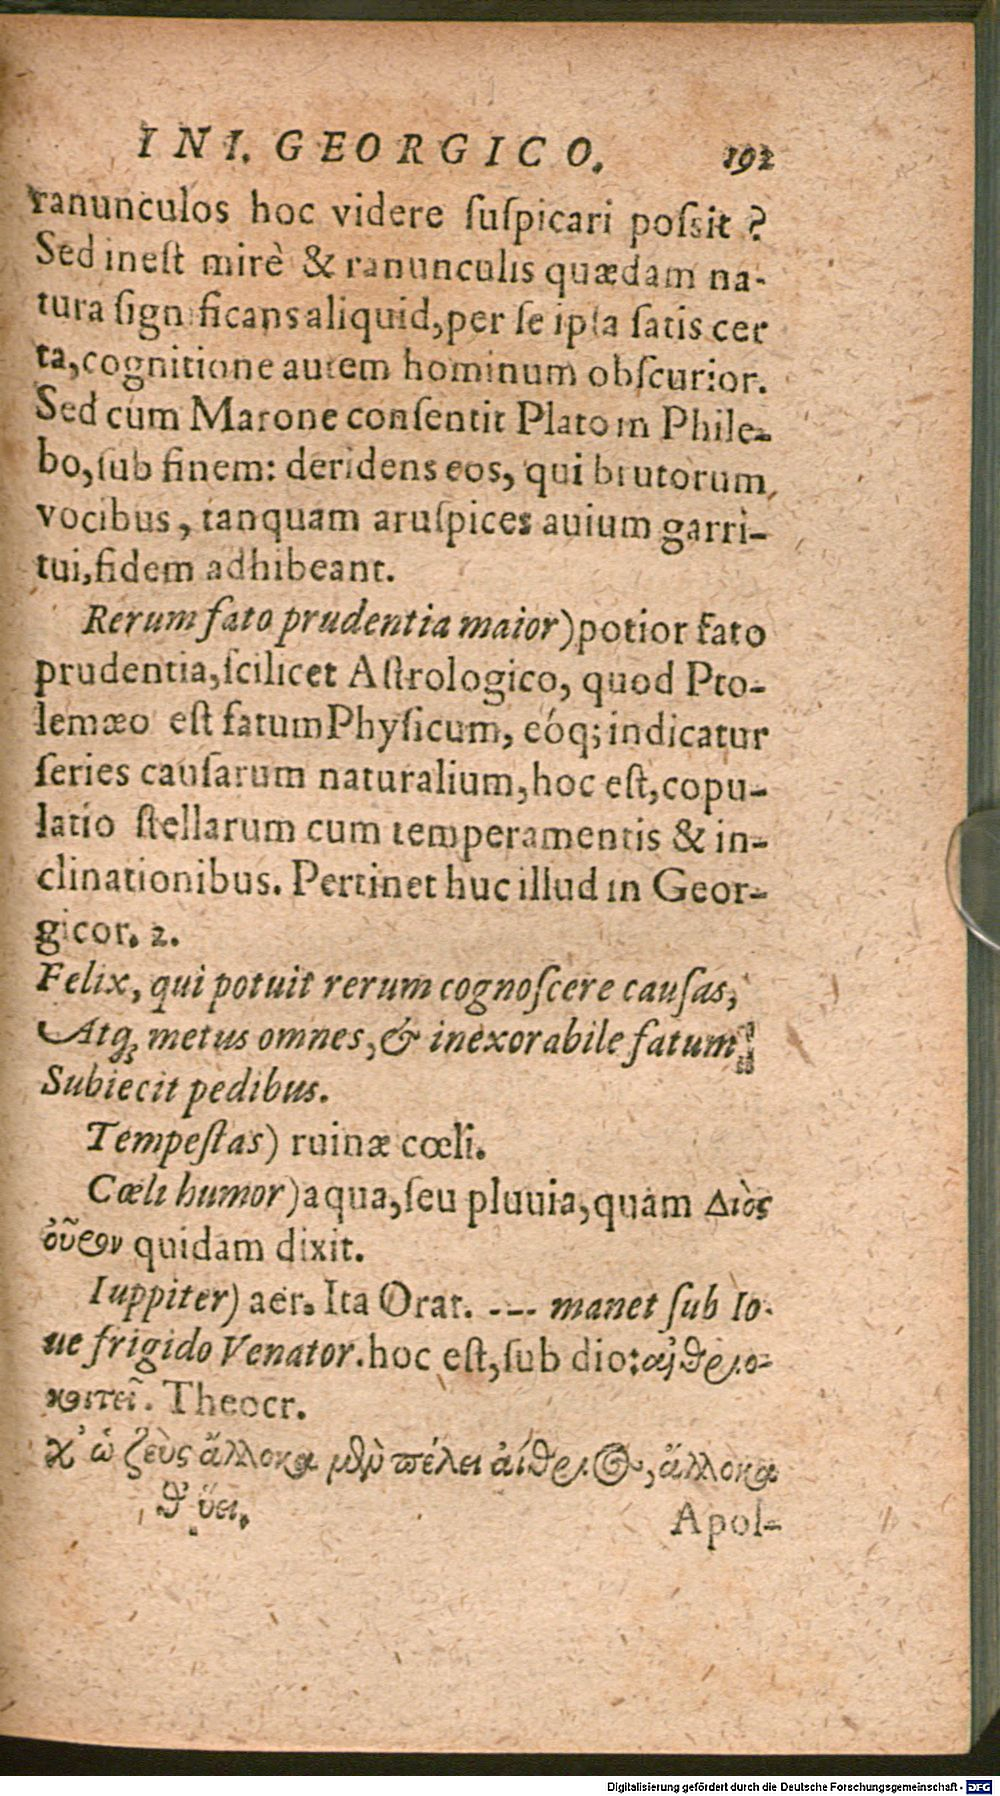 IN I. GEORGICO. 192
ranunculos hoc videre ſuſpicari poſsit?
Sed ineſt mirè & ranunculis quædam na-
tura ſignificans aliquid, per ſe ipſa ſatis cer
ta, cognitione autem hominum obſcurior.
Sed cum Marone conſentit Plato in Phile-
bo, ſub finem: deridens eos, qui brutorum
vocibus, tanquam aruſpices auium garri-
tui, fidem adhibeant.
Rerum fato prudentia maior) potior fato
prudentia, ſcilicet Aſtrologico, quod Pto-
lemæo eſt fatum Phyſicum, eóq; indicatur
ſeries cauſarum naturalium, hoc eſt, copu-
latio ſtellarum cum temperamentis & in-
clinationibus. Pertinet huc illud in Geor-
gicor. 2.
Felix, qui potuit rerum cognoſcere cauſas,
Atq; metus omnes, & inexorabile fatum
Subiecit pedibus.
Tempeſtas) ruinæ cœli.
Cœli humor) aqua, ſeu pluuia, quam Διὸς
οὖρον quidam dixit.
Iuppiter) aer. Ita Orat. --- manet ſub Io-
ue frigido Venator. hoc eſt, ſub dio: αἰθριο-
κοιτεῖ. Theocr.
χ' ὡ ζεὺς ἄλλοκα μὲν πέλει αἴθριος, ἄλλοκα
δ' ὕει.
Apol-
Digitalisierung gefördert durch die Deutsche Forschungsgemeinschaft - DFG